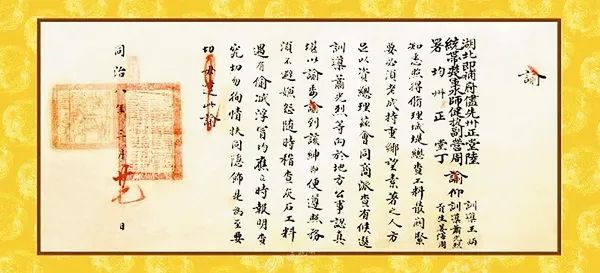 諭
湖北即補府儘先州正堂陸
統帶襄軍師健後副營周
署均州正堂丁
諭仰
訓導王炳
訓導蕭光烈
知悉照得修理城堤總查工料最關緊
要必須老成持重鄉望素孚之人方
足以資總理茲會同商派查有候選
訓導蕭光烈等向於地方公事認真
堪以諭委諭到該紳即便遵照務
須不避嫌怨隨時稽查灰石工料
遇有偷減浮冒均應立時報明查
究切勿徇情扶同隱飾是為至要
切切毋違此諭
同治八年三月 日